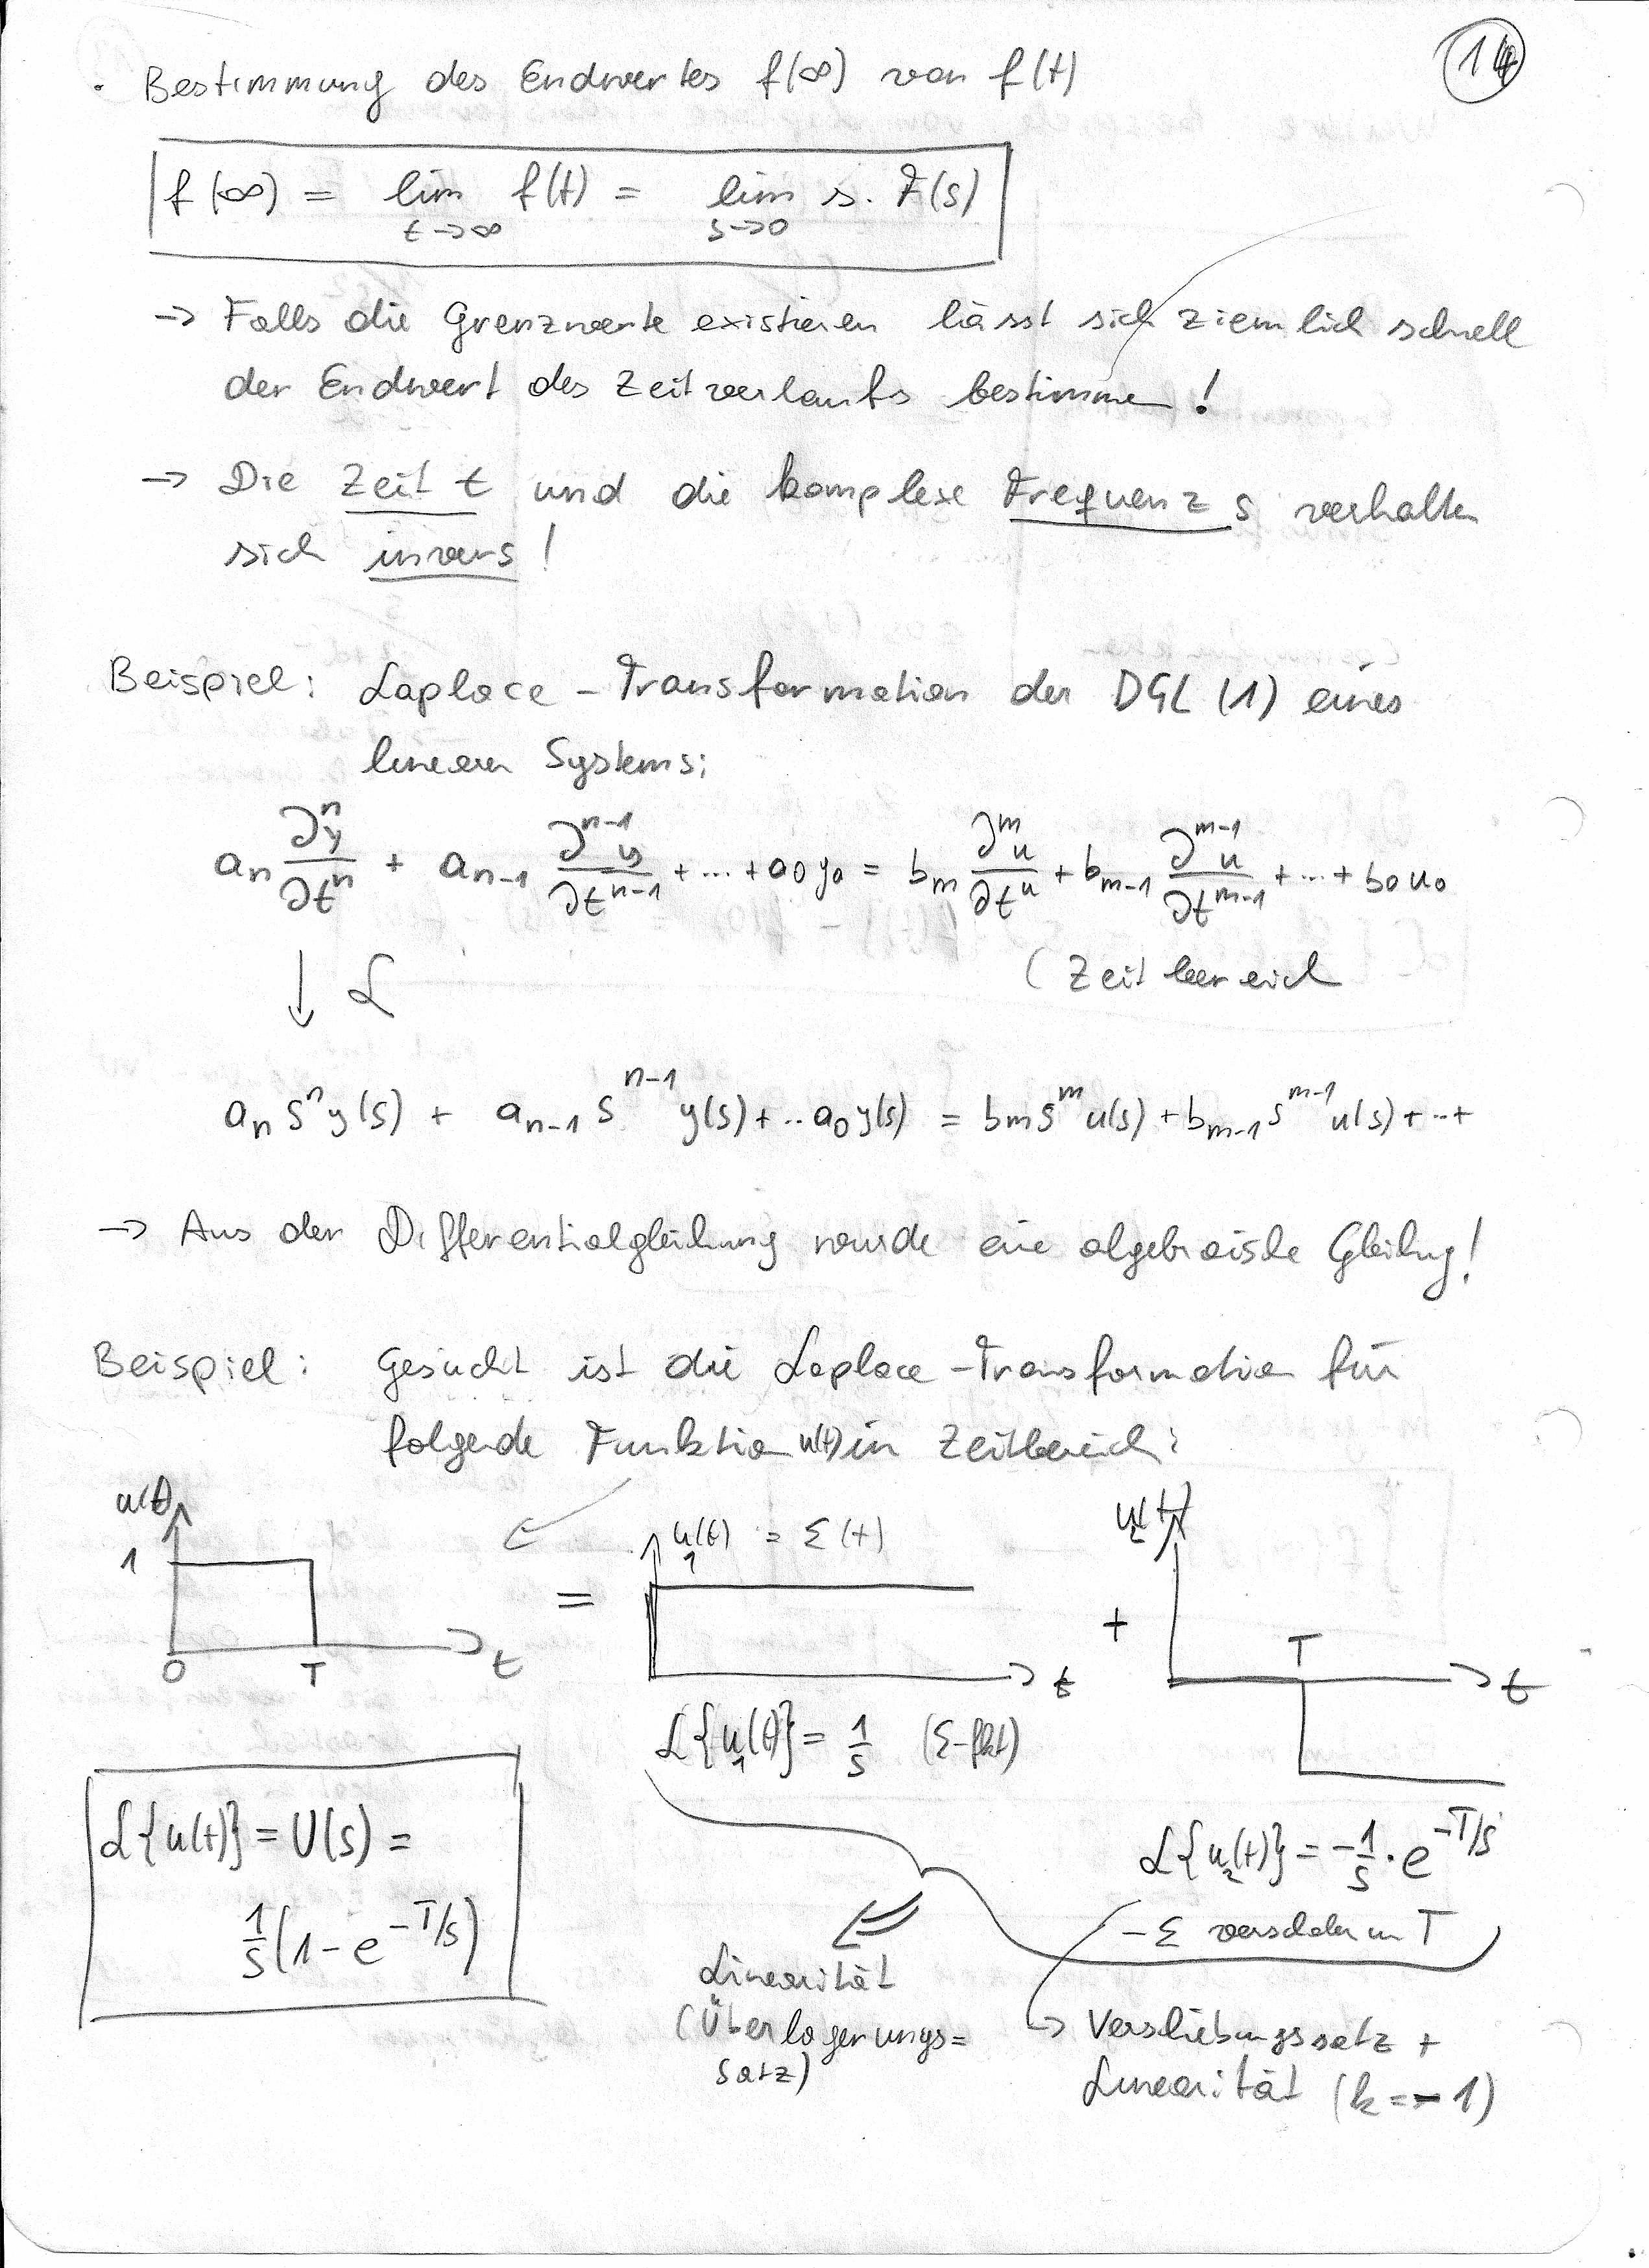 14
· Bestimmung des Endwertes f(∞) von f(t)
f(∞) = lim t→∞ f(t) = lim s→0 s · F(s)
→ Falls die Grenzwerte existieren lässt sich ziemlich schnell
der Endwert des Zeitverlaufs bestimmen!
→ Die Zeit t und die komplexe Frequenz s verhalten
sich invers!
Beispiel: Laplace-Transformation der DGL (1) eines
linearen Systems:
aₙ ∂ⁿy/∂tⁿ + aₙ₋₁ ∂ⁿ⁻¹y/∂tⁿ⁻¹ + ... + a₀y₀ = bₘ ∂ᵐu/∂tⁿ + bₘ₋₁ ∂ᵐ⁻¹u/∂tᵐ⁻¹ + ... + b₀u₀
(Zeitbereich
↓ ℒ
aₙ sⁿ y(s) + aₙ₋₁ sⁿ⁻¹ y(s) + .. a₀ y(s) = bₘ sᵐ u(s) + bₘ₋₁ sᵐ⁻¹ u(s) + ... +
→ Aus der Differentialgleichung wurde eine algebraische Gleichung!
Beispiel: Gesucht ist die Laplace-Transformation für
folgende Funktion u(t) in Zeitbereich:
u(t)
1
0 T t
=
u₁(t) = Σ(t)
t
ℒ{u₁(t)} = 1/s (Σ-fkt)
+
u₂(t)
T
t
ℒ{u₂(t)} = -1/s · e^(-T/s)
-Σ verschoben um T
ℒ{u(t)} = U(s) =
1/s (1 - e^(-T/s))
Linearität
(Überlagerungs=
satz)
↳ Verschiebungssatz +
Linearität (k = -1)